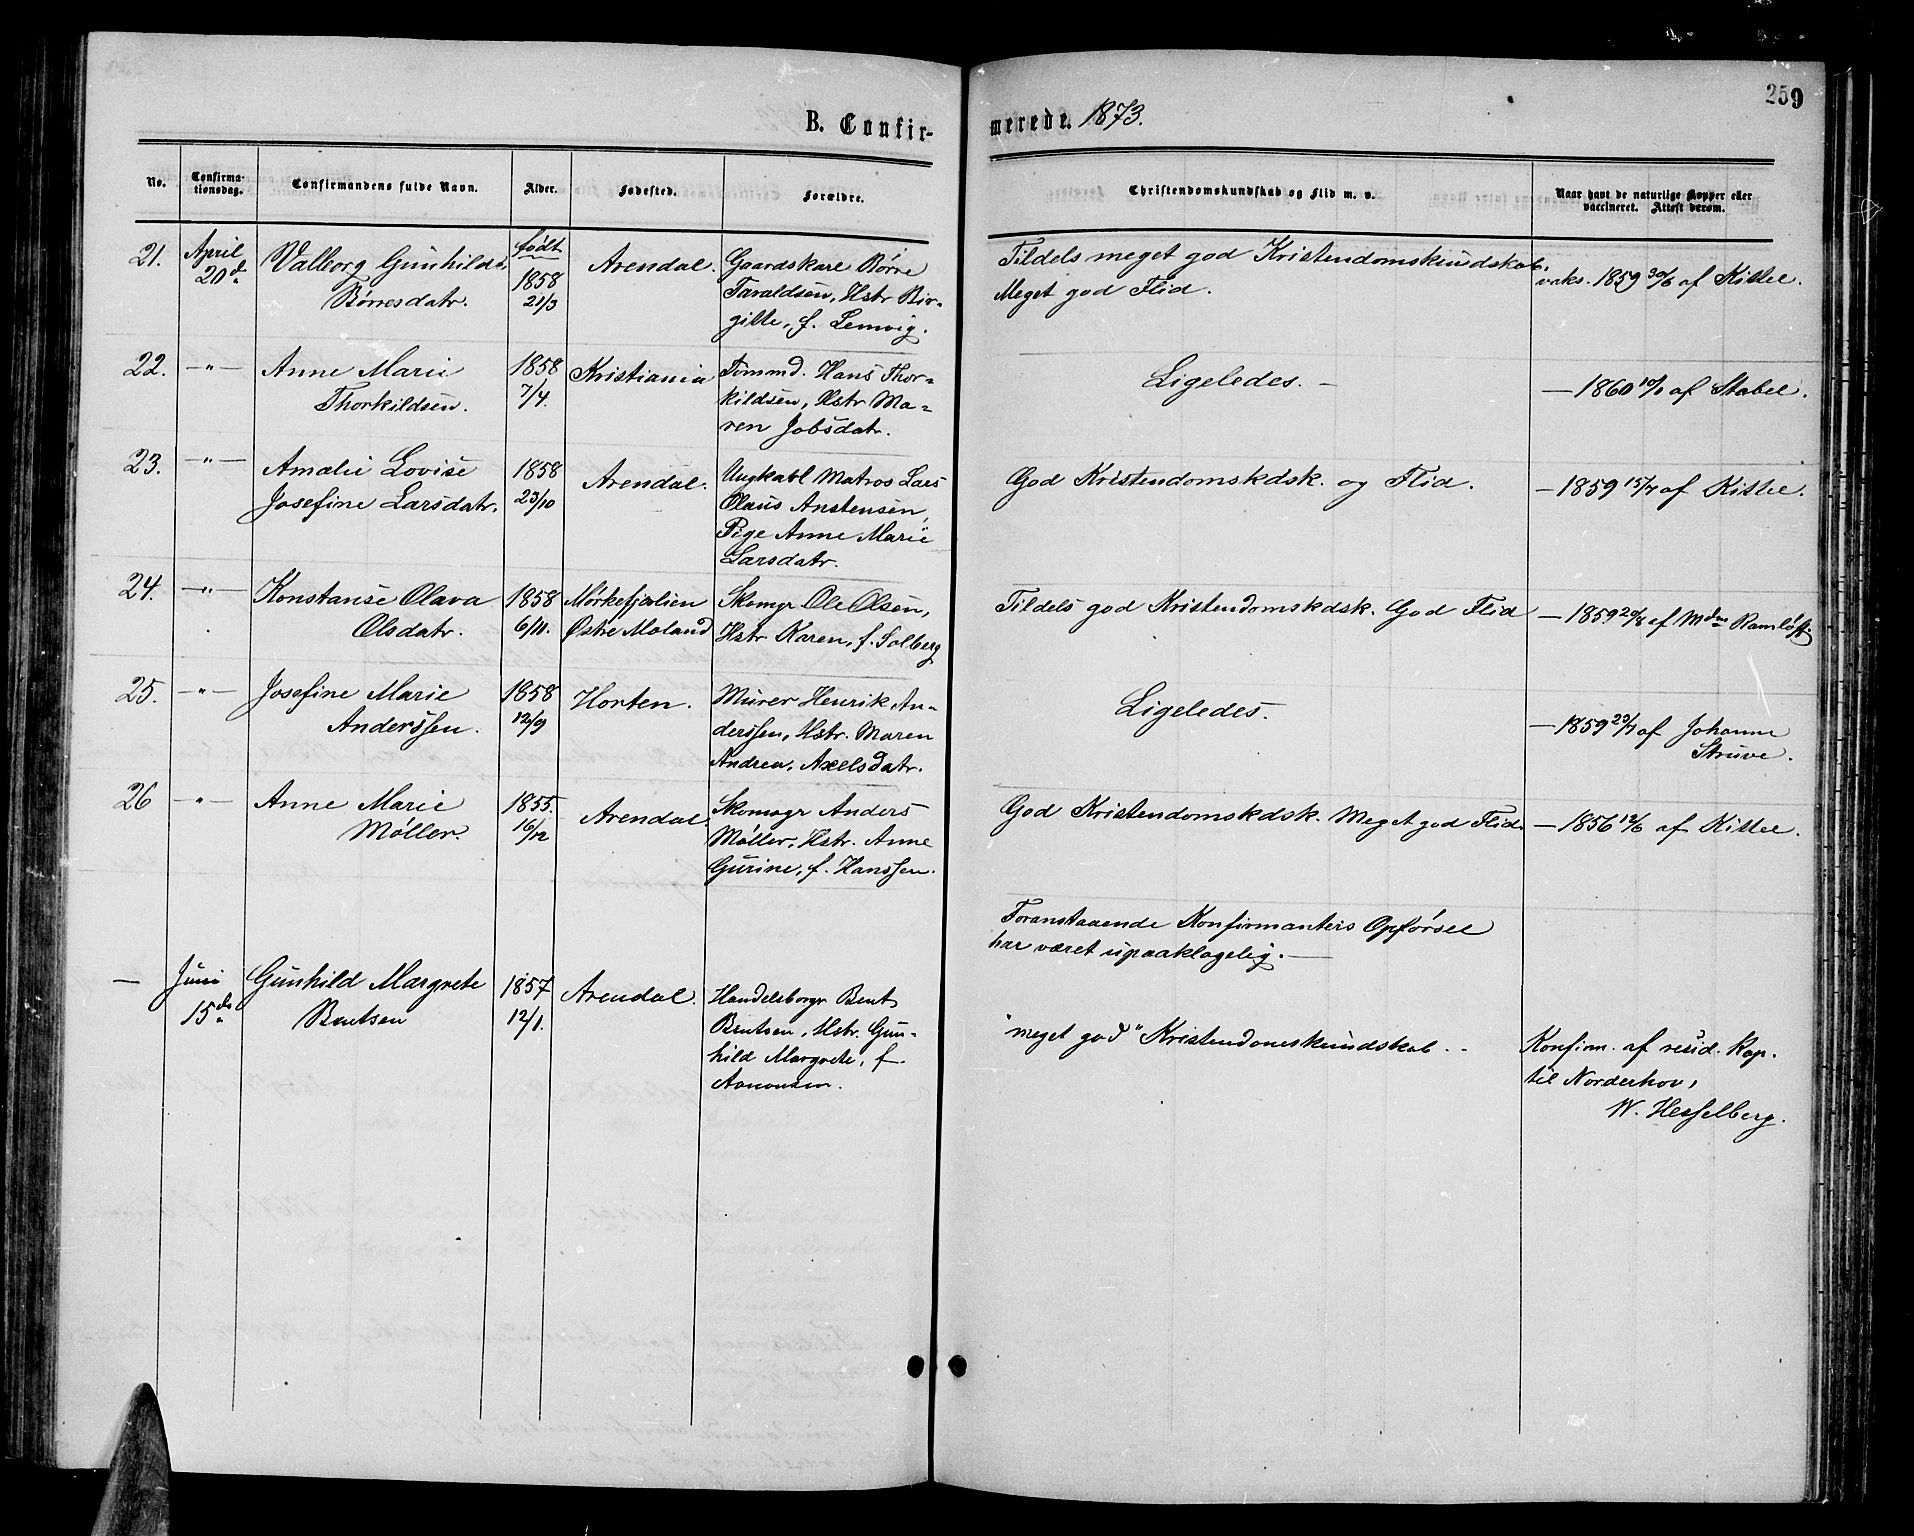 259
B. Confirmerede. 1873.
No. Confirmationsdag. Confirmandens fulde Navn. Alder. Fødested. Forældre. Christendomskundskab og Flid m. v. Naar havt de naturlige Kopper eller vaccineret. Attest derom.
21. April 20d. Valborg Gunhilda født 1858 Arendal. Gaardskarl Børre Tildels meget god Kristendomskundskab. vaks. 1859 30/6 af Kittel.
Børresdatr. 21/3 Taraldsen, Hstr Bir- Meget god Flid.
gitte, f. Lemvig.
22. —"— Anne Marie 1858 Kristiania Tømmd. Hans Thor- Ligeledes. — — 1860 10/1 af Stabel.
Thorkildsen. 7/4. kildsen, Hstr Ma-
ren Jobsdatr.
23. —"— Amalie Lovise 1858 Arendal. Ungkarl Matros Lars God Kristendomskdsk. og Flid. — 1859 15/7 af Kittel.
Josefine Larsdatr. 23/10 Olaus Anstensen,
Pige Anne Marie
Larsdatr.
24. —"— Konstanse Olava 1858 Mørkefjælien Skomgr Ole Olsen, Tildels god Kristendomskdsk. God Flid — 1859 20/8 af Mdm Ramløff.
Olsdatr. 6/11. Østre Moland Hstr Karen, f. Solberg
25. —"— Josefine Marie 1858 Horten. Murer Henrik An- Ligeledes. — 1859 23/7 af Johanne
Anderssen. 12/9 derssen, Hstr. Maren Struve.
Andrea, Axelsdatr.
26 —"— Anne Marie 1855. Arendal. Skomagr Anders God Kristendomskdsk. Meget god Flid. — 1856 12/6 af Kittel.
Møller. 16/12 Møller, Hstr. Anne
Gurine, f. Hanssen.
Foranstaaende Konfirmanters Opførsel
har været upaaklagelig. —
— Juni 15de Gunhild Margrete 1857 Arendal. Handelsborgr Bent "meget god" Kristendomskundskab. - Konfirm. af resid. Kap.
Bentsen 12/1. Bentsen, Hstr. Gun- til Norderhov,
hild Margrete, f. W. Hesselberg.